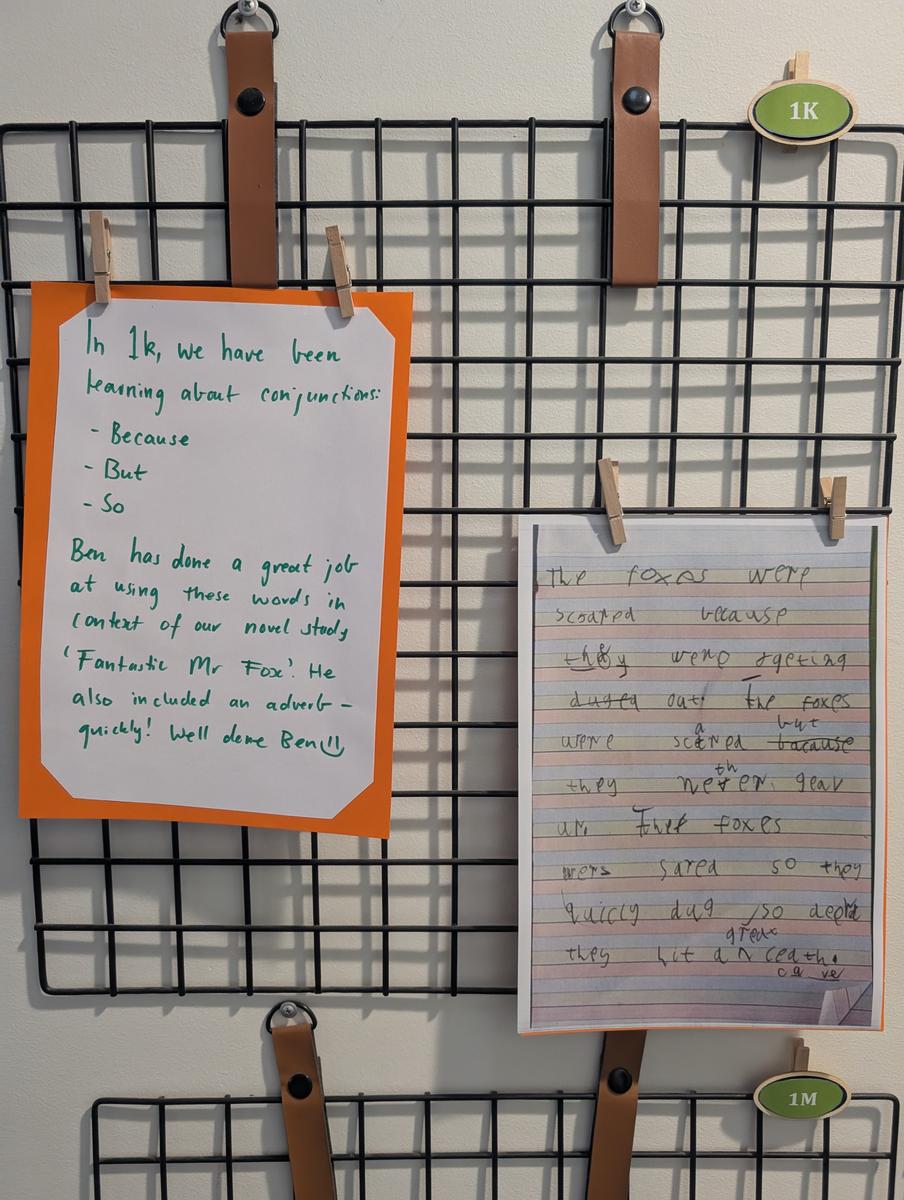 1K
In 1k, we have been
learning about conjunctions:
- Because
- But
- So
Ben has done a great job
at using these words in
context of our novel study
'Fantastic Mr Fox'. He
also included an adverb -
quickly! Well done Ben
The foxes were
scoared because
they were geting
duged out. The foxes
but
were scared bacause
a
th
they never gear
up. The foxes
were sared so they
quicly dug so deep
great
they hit a
ca ve
1M